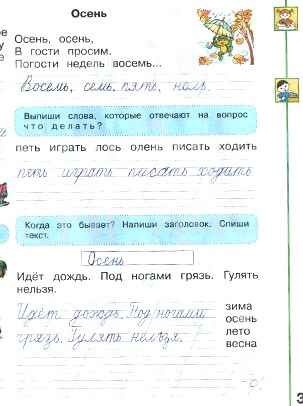 Осень
Осень, осень,
В гости просим.
Погости недель восемь...
Восемь, семь, пять, ноль.
Выпиши слова, которые отвечают на вопрос
что делать?
петь играть лось олень писать ходить
петь играть писать ходить
Когда это бывает? Напиши заголовок. Спиши
текст.
Осень
Идёт дождь. Под ногами грязь. Гулять
нельзя.
Идёт дождь. Под ногами
грязь. Гулять нельзя.
зима
осень
лето
весна
3